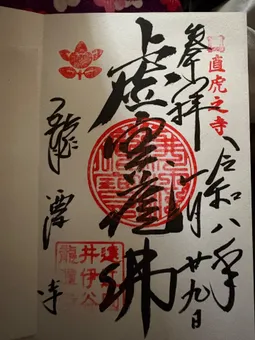 直虎之寺
令和八年
月廿九日
奉拝
虚空蔵佛
龍潭寺
井伊谷
龍潭寺